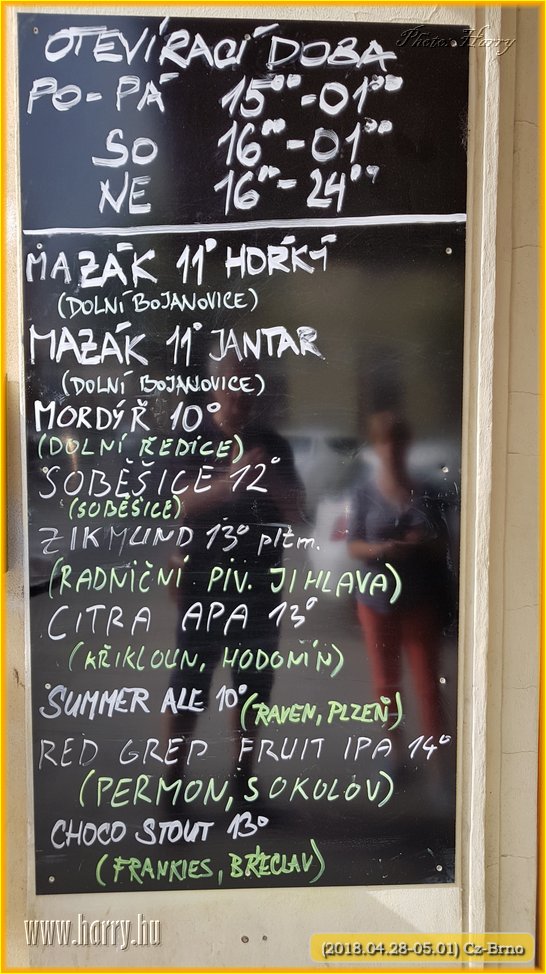 Photo: Harry
OTEVÍRACÍ DOBA
PO-PÁ 15⁰⁰-01⁰⁰
SO 16⁰⁰-01⁰⁰
NE 16⁰⁰-24⁰⁰
MAZÁK 11° HOŘKÝ
(DOLNÍ BOJANOVICE)
MAZÁK 11° JANTAR
(DOLNÍ BOJANOVICE)
MORDÝŘ 10°
(DOLNÍ ŘEDICE)
SOBĚŠICE 12°
(SOBĚŠICE)
ZIKMUND 13° pltm.
(RADNIČNÍ PIV. JIHLAVA)
CITRA APA 13°
(KŘIKLOUN, HODONÍN)
SUMMER ALE 10° (RAVEN, PLZEŇ)
RED GREP FRUIT IPA 14°
(PERMON, SOKOLOV)
CHOCO STOUT 13°
(FRANKIES, BŘECLAV)
www.harry.hu
(2018.04.28-05.01) Cz-Brno